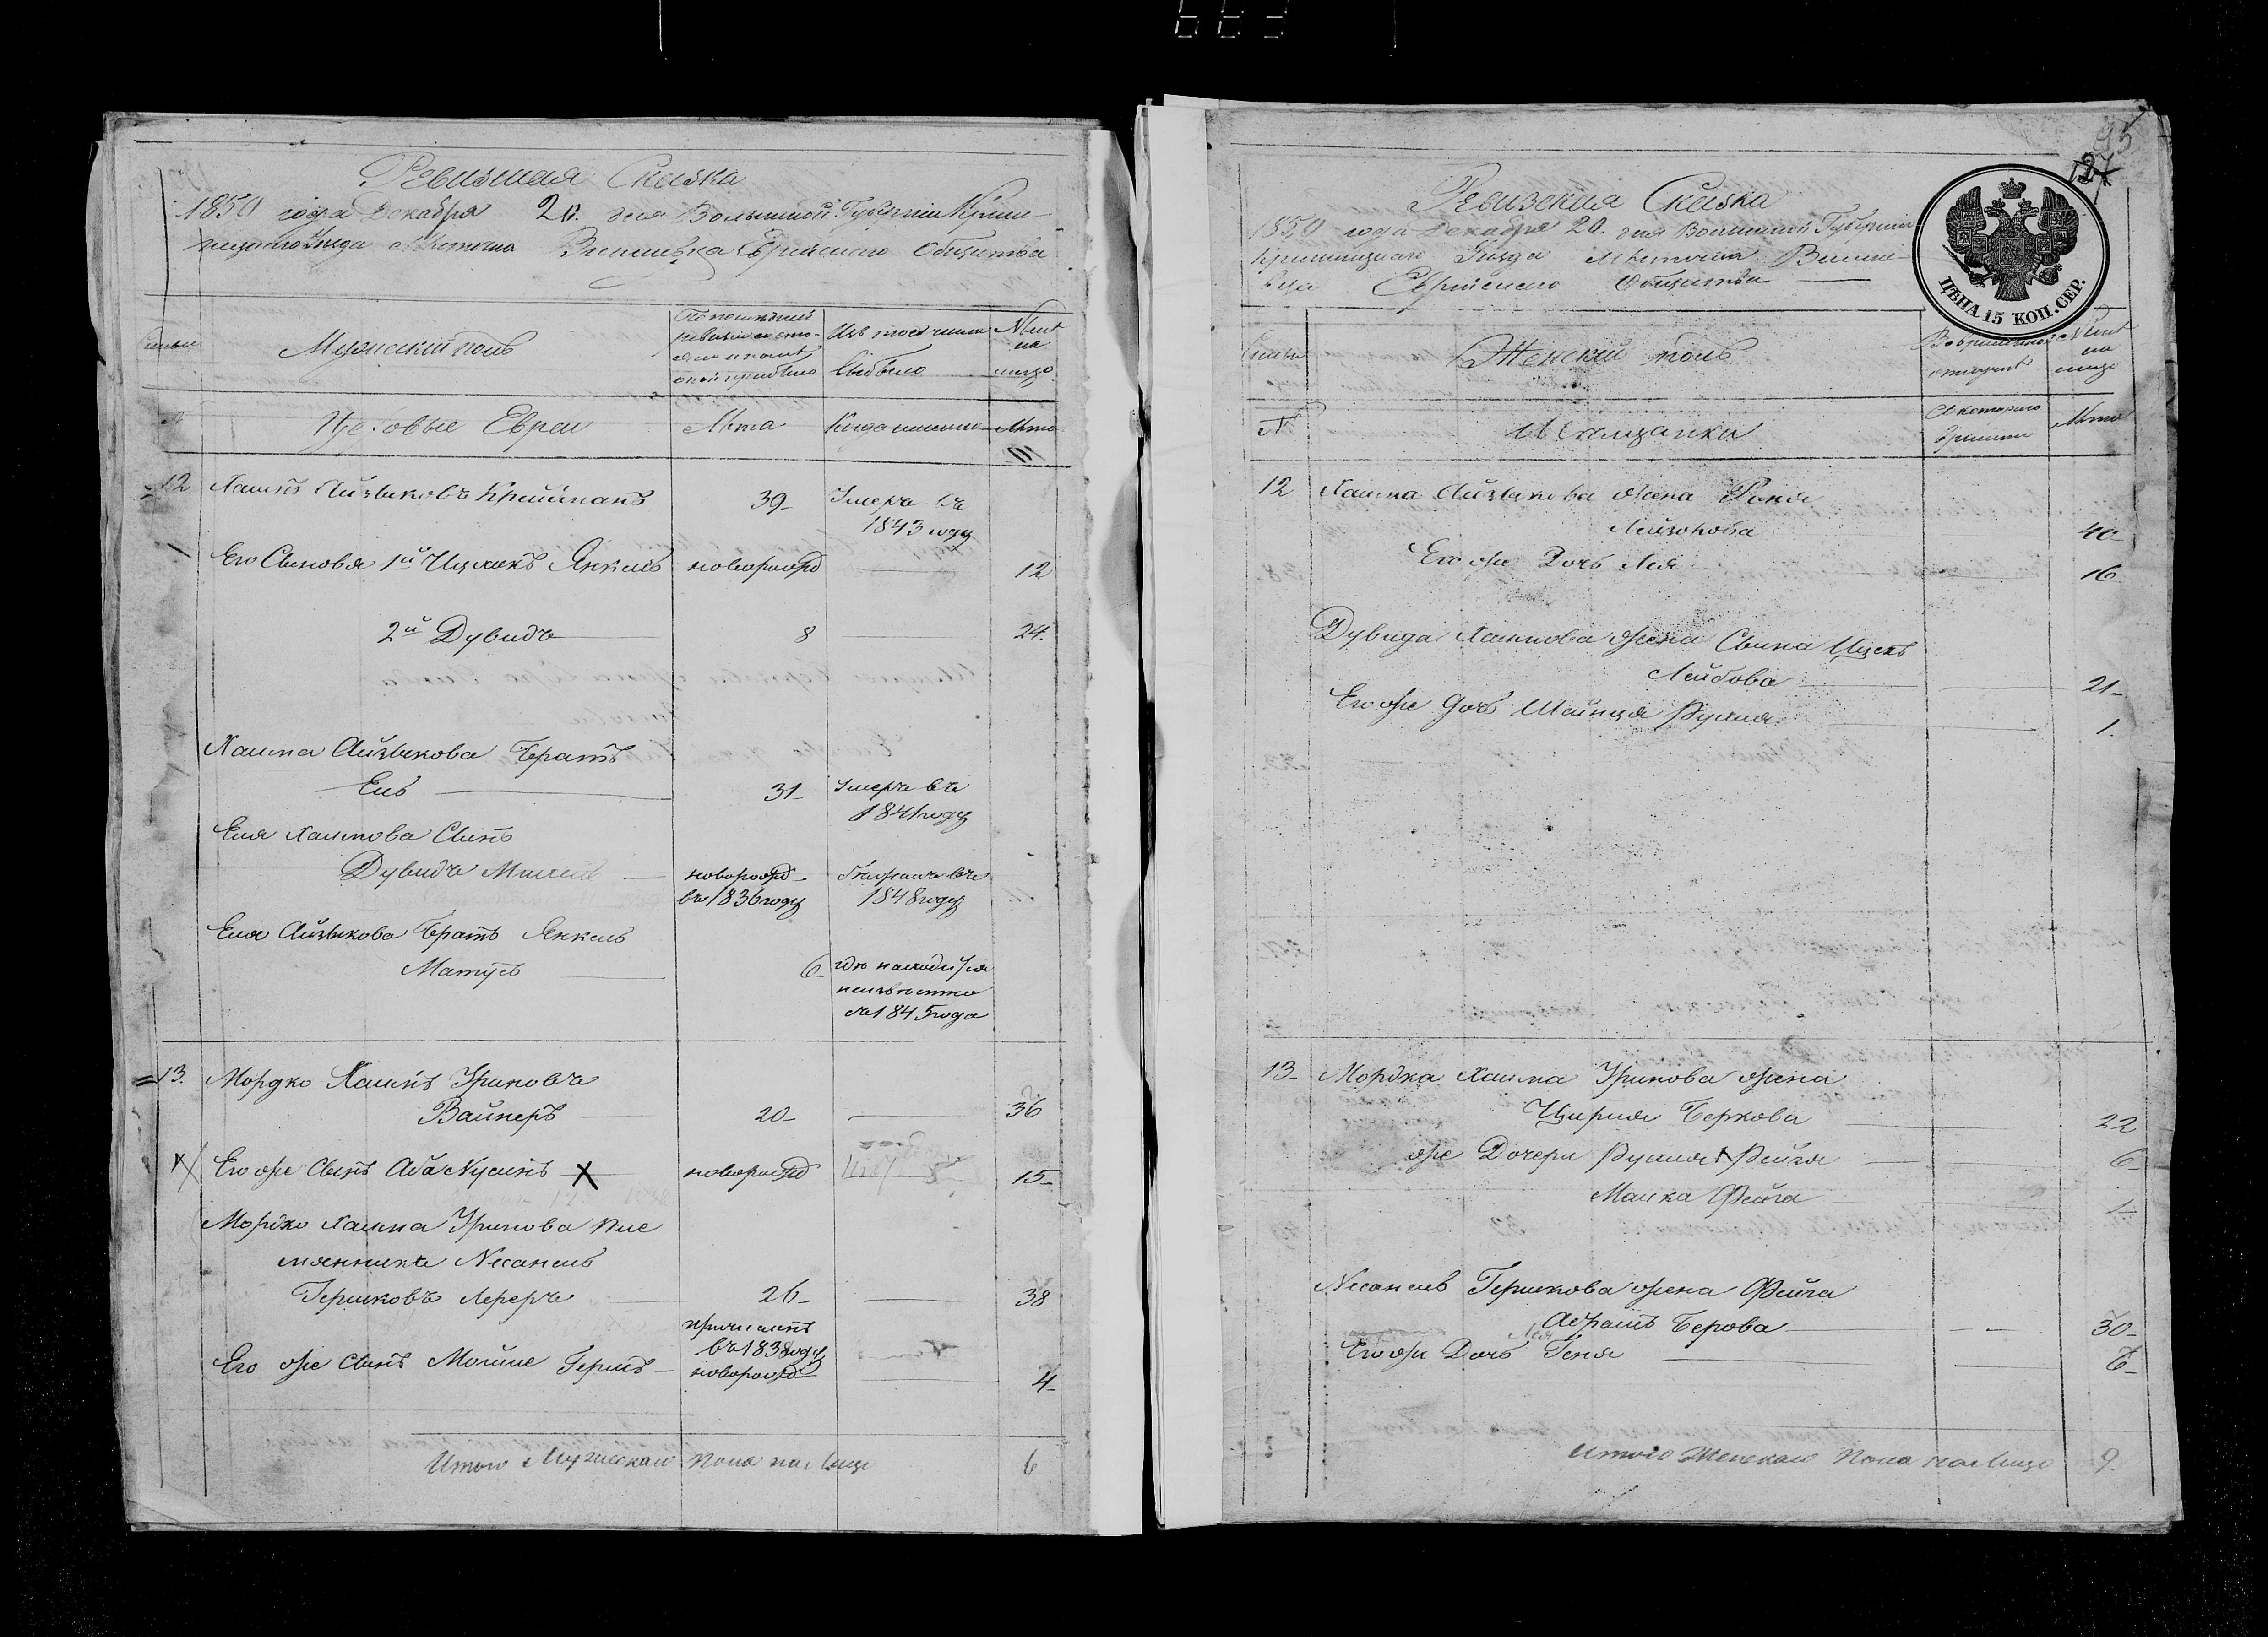 Ревизская Сказка
1850 года Декабря 20. дня Волынской Губернии Креме-
нецкаго Уезда Местечка Вишневца Еврейскаго Общества
Семьи
Мужеский полъ
По последней
ревизии состо-
яло и после
оной прибыло
Изъ того числа
выбыло
Ныне
на
лицо
Цеховые Евреи
Лета
Когда именно
Лета
12 Хаимъ Айзиковъ Крейтманъ 39 Умеръ въ
1843 году
Его Сыновья 1й Ицхокъ Янкель новорожд 12
2й Дувидъ 8 24.
Хаима Айзикова Братъ
Ель 31 Умеръ въ
1841 году
Еля Хаимова Сынъ
Дувидъ новорожд
въ 1836 году въ
1848 году
Еля Айзикова Братъ Янкель
Матусъ 6 где находится
неизвестно
съ 1845 года
13. Мордко Хаимъ Уриновъ
Вайнеръ 20 36
Его же Сынъ Аба Нусинъ X новорожд 15
Мордко Хаима Уринова пле
мянникъ Несанель
Гершковъ Лереръ 26 38
причисленъ
въ 1838 году
Его же сынъ Мойше Гершъ новорожд 4
Итого Мужескаго пола на лицо 6
95
27
Ревизская Сказка
1850 года Декабря 20. дня Волынской Губернии
Кременецкаго Уезда Местечка Вишне-
вца Еврейскаго Общества
ЦѢНА 15 КОП. СЕР.
Семьи
Женский полъ
Во временной
отлучке
Ныне
на
лицо
№
Мещанки
Съ котораго
времени
Лета
12 Хаима Айзикова жена
Лейзорова 40
Его же Дочь Лея 16
Дувида Хаимова жена
Лейбова 21
Его же дочь Шейндя Рухля 1.
13 Мордка Хаима Уринова жена
Ципря Беркова 22
же Дочери Рухля Рейзя 6
Малка Фейга 1
Несанель Гершкова жена Фейга
Абрамъ Берова 30
Лея
Его же Дочь Геня 6
Итого Женскаго Пола на Лицо 9.